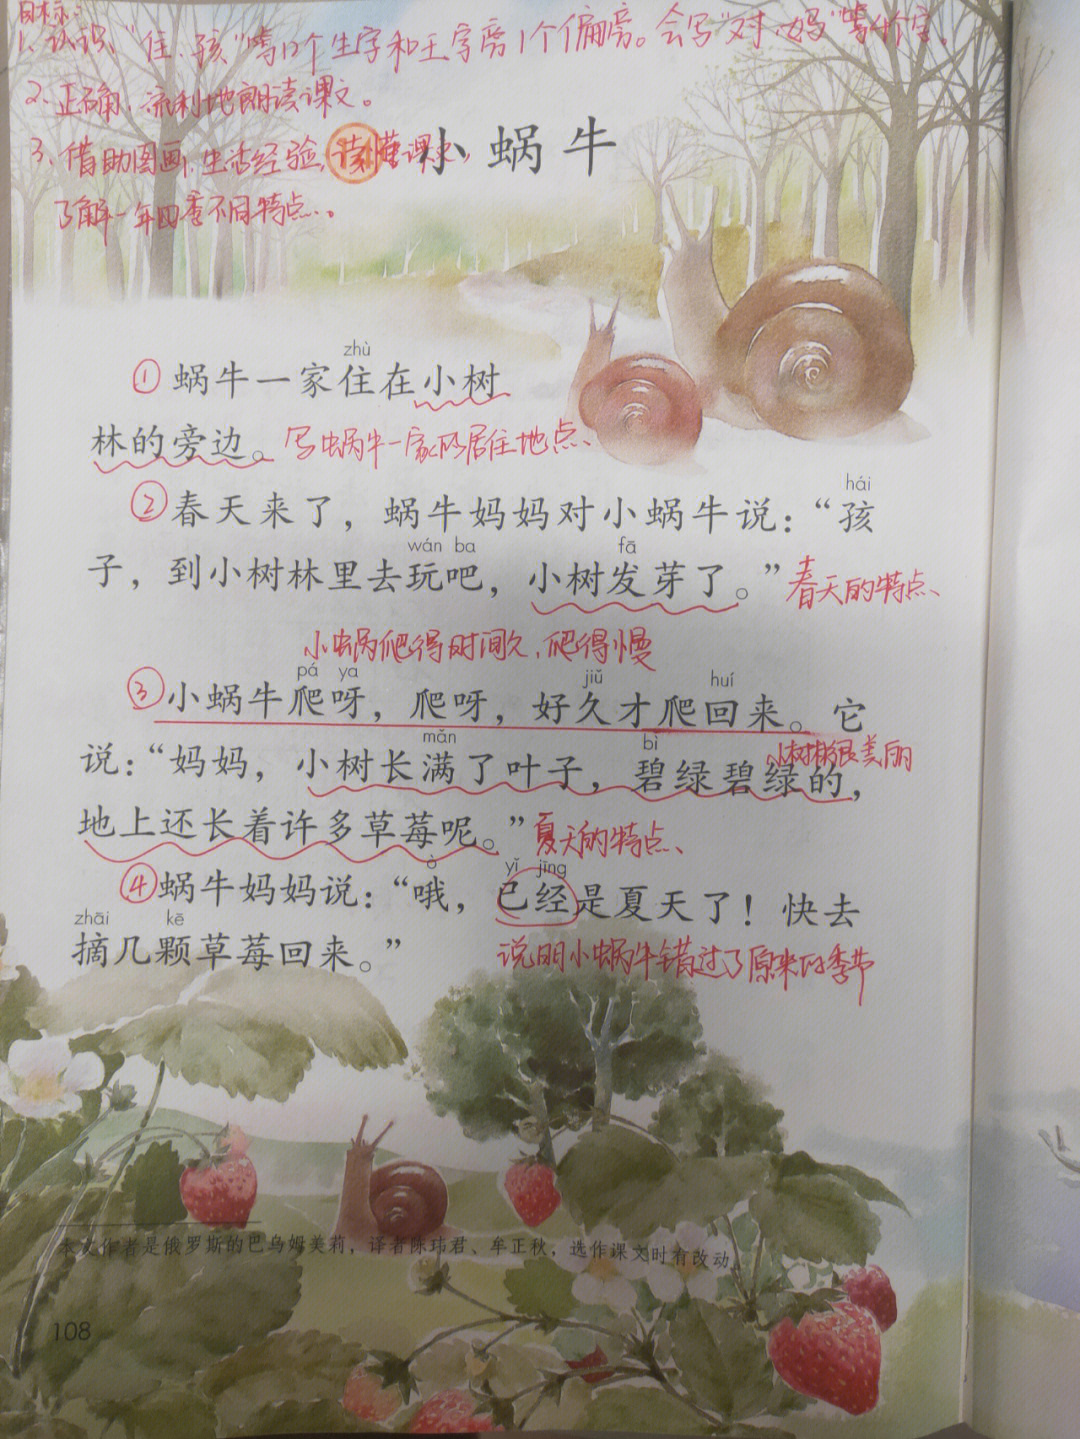 目标:
1、认识"住、孩"等12个生字和王字旁1个偏旁。会写"对、妈"等4个字。
2、正确、流利地朗读课文。
3、借助图画、生活经验,读懂课文,
了解一年四季不同特点、。
小蜗牛
zhù
①蜗牛一家住在小树
林的旁边。写蜗牛一家的居住地点、
hái
②春天来了,蜗牛妈妈对小蜗牛说:“孩
wán ba fā
子,到小树林里去玩吧,小树发芽了。”春天的特点、
小蜗爬得时间久、爬得慢
pá ya jiǔ huí
③小蜗牛爬呀,爬呀,好久才爬回来。它
mǎn bì
说:“妈妈,小树长满了叶子,碧绿碧绿的,
小树林很美丽
地上还长着许多草莓呢。”夏天的特点、
ò yǐ jīng
④蜗牛妈妈说:“哦,已经是夏天了!快去
zhāi kē
摘几颗草莓回来。”
说明小蜗牛错过了原来的季节
本文作者是俄罗斯的巴乌姆美莉,译者陈玮君、牟正秋,选作课文时有改动。
108